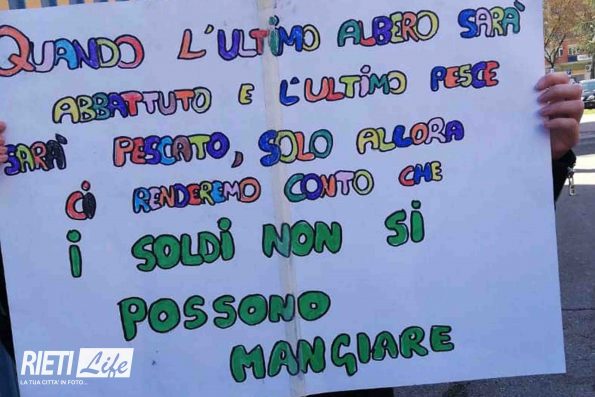 QUANDO L'ULTIMO ALBERO SARA'
ABBATTUTO E L'ULTIMO PESCE
SARA' PESCATO, SOLO ALLORA
CI RENDEREMO CONTO CHE
i SOLDI NON SI
POSSONO
MANGIARE
RIETI Life
LA TUA CITTA' IN FOTO...